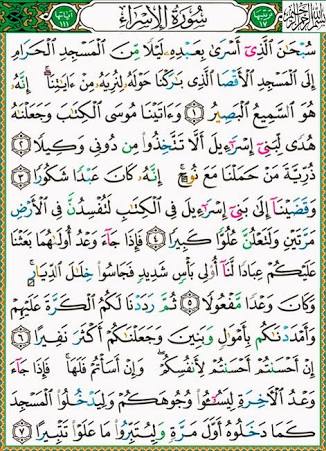 ترتيبها ١٧ سُورَةُ الإِسْرَاءِ آياتها ١١١
سُبْحَانَ الَّذِي أَسْرَىٰ بِعَبْدِهِ لَيْلًا مِنَ الْمَسْجِدِ الْحَرَامِ
إِلَى الْمَسْجِدِ الْأَقْصَا الَّذِي بَارَكْنَا حَوْلَهُ لِنُرِيَهُ مِنْ ءَايَاتِنَا ۚ إِنَّهُ
هُوَ السَّمِيعُ الْبَصِيرُ ١ وَءَاتَيْنَا مُوسَى الْكِتَابَ وَجَعَلْنَاهُ
هُدًى لِبَنِي إِسْرَاءِيلَ أَلَّا تَتَّخِذُوا مِنْ دُونِي وَكِيلًا ٢
ذُرِّيَّةَ مَنْ حَمَلْنَا مَعَ نُوحٍ ۚ إِنَّهُ كَانَ عَبْدًا شَكُورًا ٣
وَقَضَيْنَا إِلَىٰ بَنِي إِسْرَاءِيلَ فِي الْكِتَابِ لَتُفْسِدُنَّ فِي الْأَرْضِ
مَرَّتَيْنِ وَلَتَعْلُنَّ عُلُوًّا كَبِيرًا ٤ فَإِذَا جَاءَ وَعْدُ أُولَاهُمَا بَعَثْنَا
عَلَيْكُمْ عِبَادًا لَنَا أُولِي بَأْسٍ شَدِيدٍ فَجَاسُوا خِلَالَ الدِّيَارِ ۚ
وَكَانَ وَعْدًا مَفْعُولًا ٥ ثُمَّ رَدَدْنَا لَكُمُ الْكَرَّةَ عَلَيْهِمْ
وَأَمْدَدْنَاكُمْ بِأَمْوَالٍ وَبَنِينَ وَجَعَلْنَاكُمْ أَكْثَرَ نَفِيرًا ٦
إِنْ أَحْسَنْتُمْ أَحْسَنْتُمْ لِأَنْفُسِكُمْ ۖ وَإِنْ أَسَأْتُمْ فَلَهَا ۚ فَإِذَا جَاءَ
وَعْدُ الْآخِرَةِ لِيَسُوءُوا وُجُوهَكُمْ وَلِيَدْخُلُوا الْمَسْجِدَ
كَمَا دَخَلُوهُ أَوَّلَ مَرَّةٍ وَلِيُتَبِّرُوا مَا عَلَوْا تَتْبِيرًا ٧